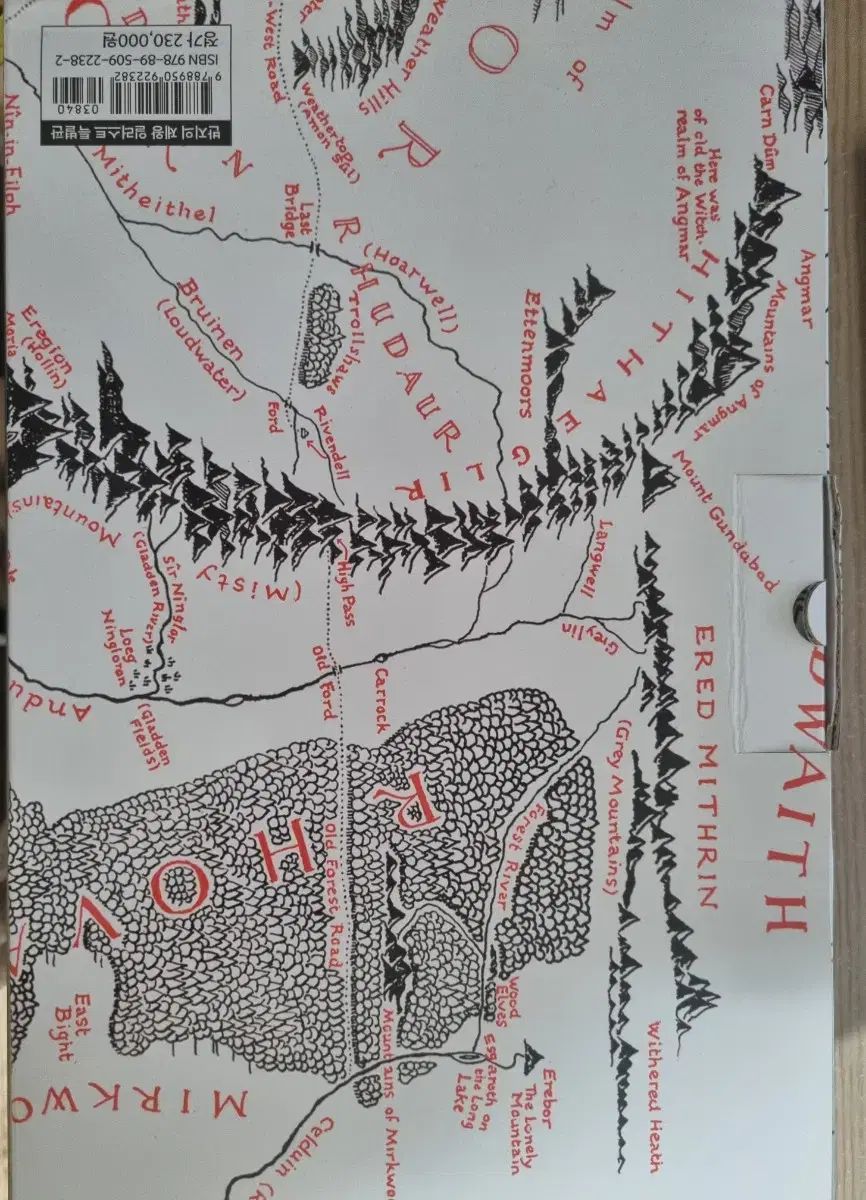 반지의 제왕 일러스트 특별판
03840
9 788950 922382
ISBN 978-89-509-2238-2
정가 230,000원
-West Road
Weather Hills
Weathertop
(Amon Sûl)
Nîn-in-Eilph
Mitheithel
Last
Bridge
(Hoarwell)
Bruinen
(Loudwater)
Trollshaws
RHUDAUR
Ford
Rivendell
Eregion
(Hollin)
Moria
Ettenmoors
Here was
of old the Witch-
realm of Angmar
Carn Dûm
Angmar
Mountains of Angmar
HITHAEGLIR
Mount Gundabad
(Misty
Mountains)
High Pass
Sîr Ninglor
(Gladden River)
Loeg
Ningloron
(Gladden
Fields)
Langwell
Greylin
Old Ford
Carrock
Andu
ERED MITHRIN
(Grey Mountains)
DWAITH
Withered Heath
Forest River
Old Forest Road
RHOV
Wood
Elves
Esgaroth on
the Long
Lake
Erebor
The Lonely
Mountain
Mountains of Mirkwo
East
Bight
MIRKWO
Celduin (R